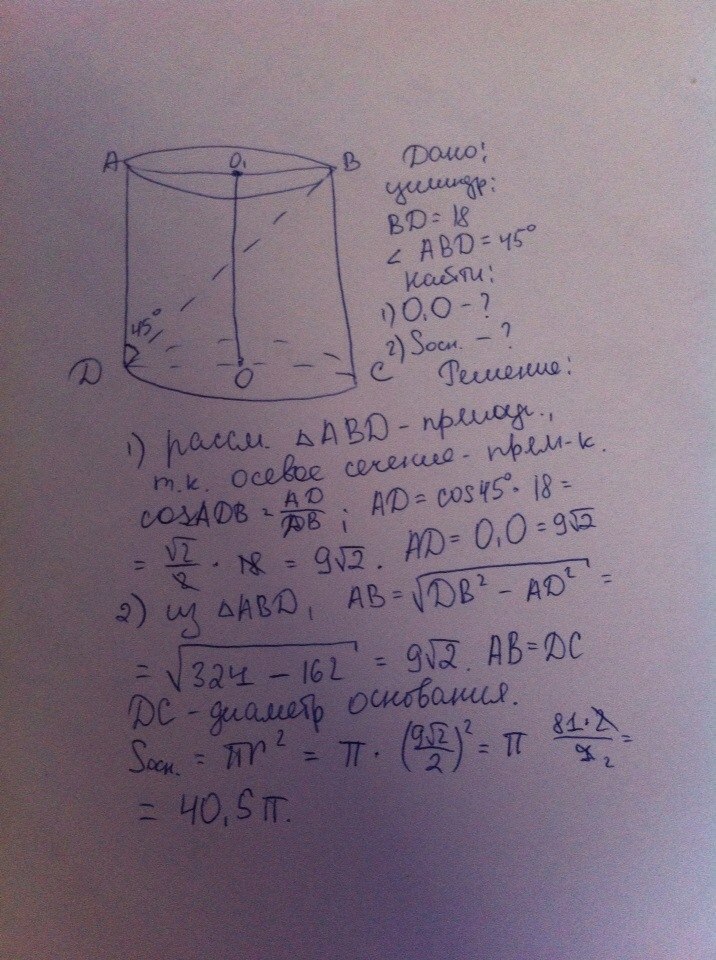 A O₁ B
45°
D O C
Дано:
цилиндр:
BD = 18
∠ ABD = 45°
Найти:
1) O₁O - ?
2) Sосн. - ?
Решение:
1) рассм. △ABD - прямоуг.,
т.к. осевое сечение - прям-к.
cosADB = AD/DB ; AD = cos45° · 18 =
= √2/2 · 18 = 9√2. AD = O₁O = 9√2
2) из △ABD, AB = √(DB² - AD²) =
= √(324 - 162) = 9√2. AB = DC
DC - диаметр основания.
Sосн. = πr² = π · (9√2/2)² = π 81·2/4 2 =
= 40,5π.